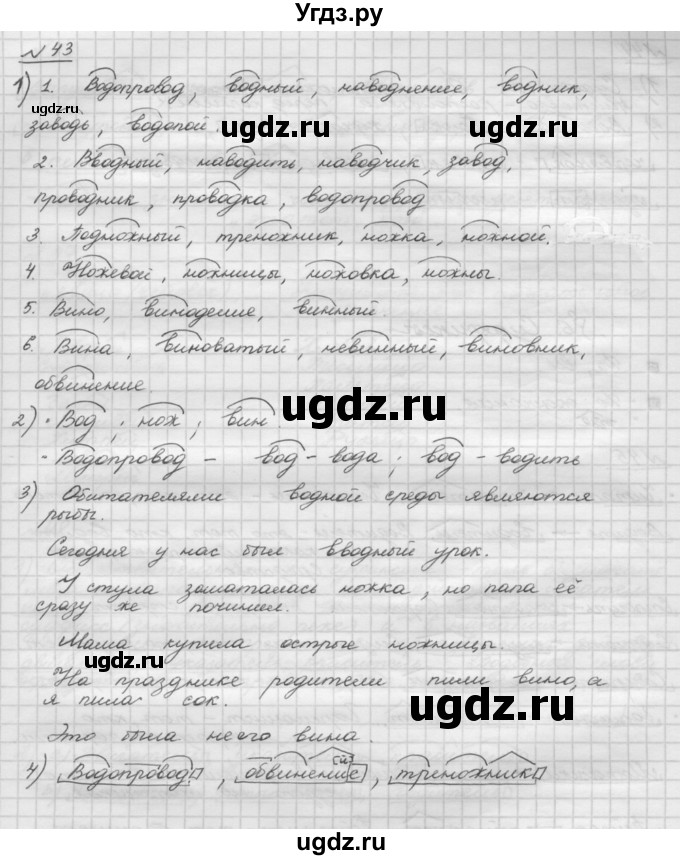 Угдз.ру
№ 43
1) 1. Водопровод, водный, наводнение, водник,
заводь, водопой.
ugdz.ru ugdz.ru
2. Вводный, наводить, наводчик, завод,
проводник, проводка, водопровод
3. Подножный, треножник, ножка, ножной.
4. Ножевой, ножницы, ножовка, ножны.
5. Вино, виноделие, винный.
6. Вина, виноватый, невинный, виновник,
обвинение.
ugdz.ru ugdz.ru
2) • Вод ; нож ; вин.
• Водопровод – вод – вода ; вод – водить
3) Обитателями водной среды являются
рыбы.
Сегодня у нас был вводный урок.
У стула зашаталась ножка, но папа её
сразу же починил.
Мама купила острые ножницы.
ugdz.ru
На празднике родители пили вино, а
я пила сок.
ugdz.ru
Это была не его вина.
4) Водопровод, обвинение [й], треножник
ugdz.ru